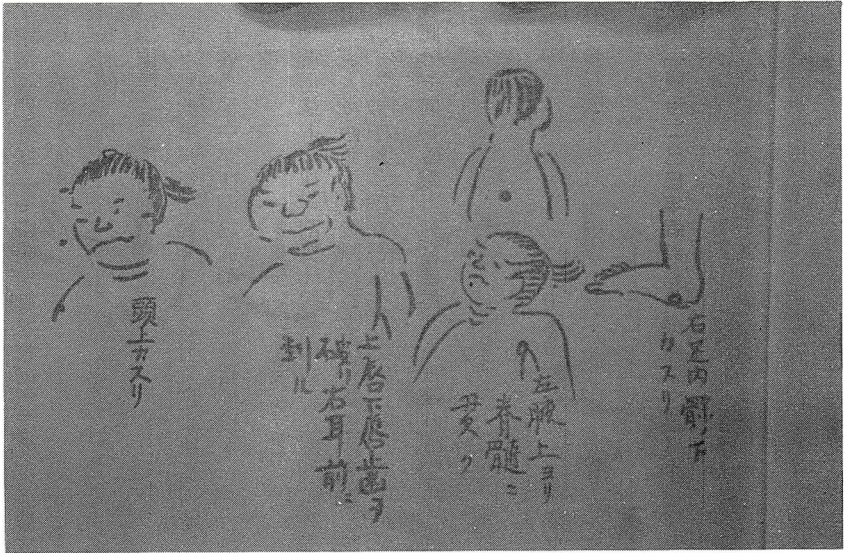 右足内髁ノ下
カスリ
左腋上ヨリ
脊髄ニ
貫ク
上唇下唇歯ヲ
破リ右耳前ニ
到ル
頭上カスリ